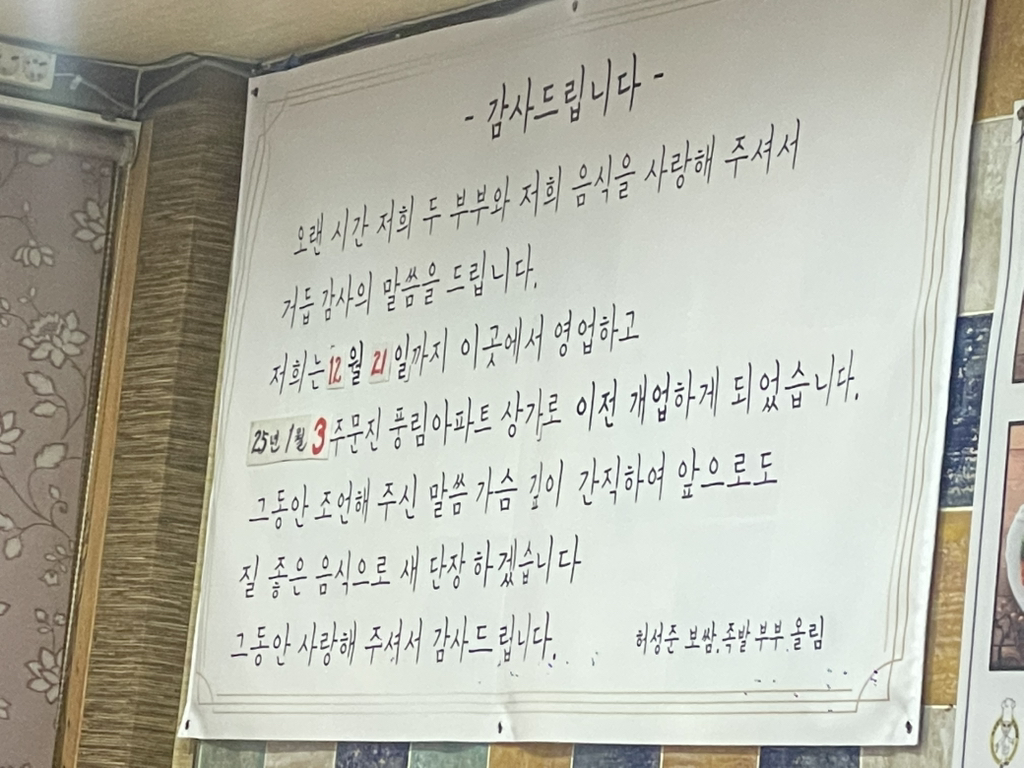 - 감사드립니다 -
오랜 시간 저희 두 부부와 저희 음식을 사랑해 주셔서
거듭 감사의 말씀을 드립니다.
저희는 12월 21일까지 이곳에서 영업하고
25년 1월 3 주문진 풍림아파트 상가로 이전 개업하게 되었습니다.
그동안 조언해 주신 말씀 가슴 깊이 간직하여 앞으로도
질 좋은 음식으로 새 단장 하겠습니다
그동안 사랑해 주셔서 감사드립니다.
허성준 보쌈.족발 부부 올림